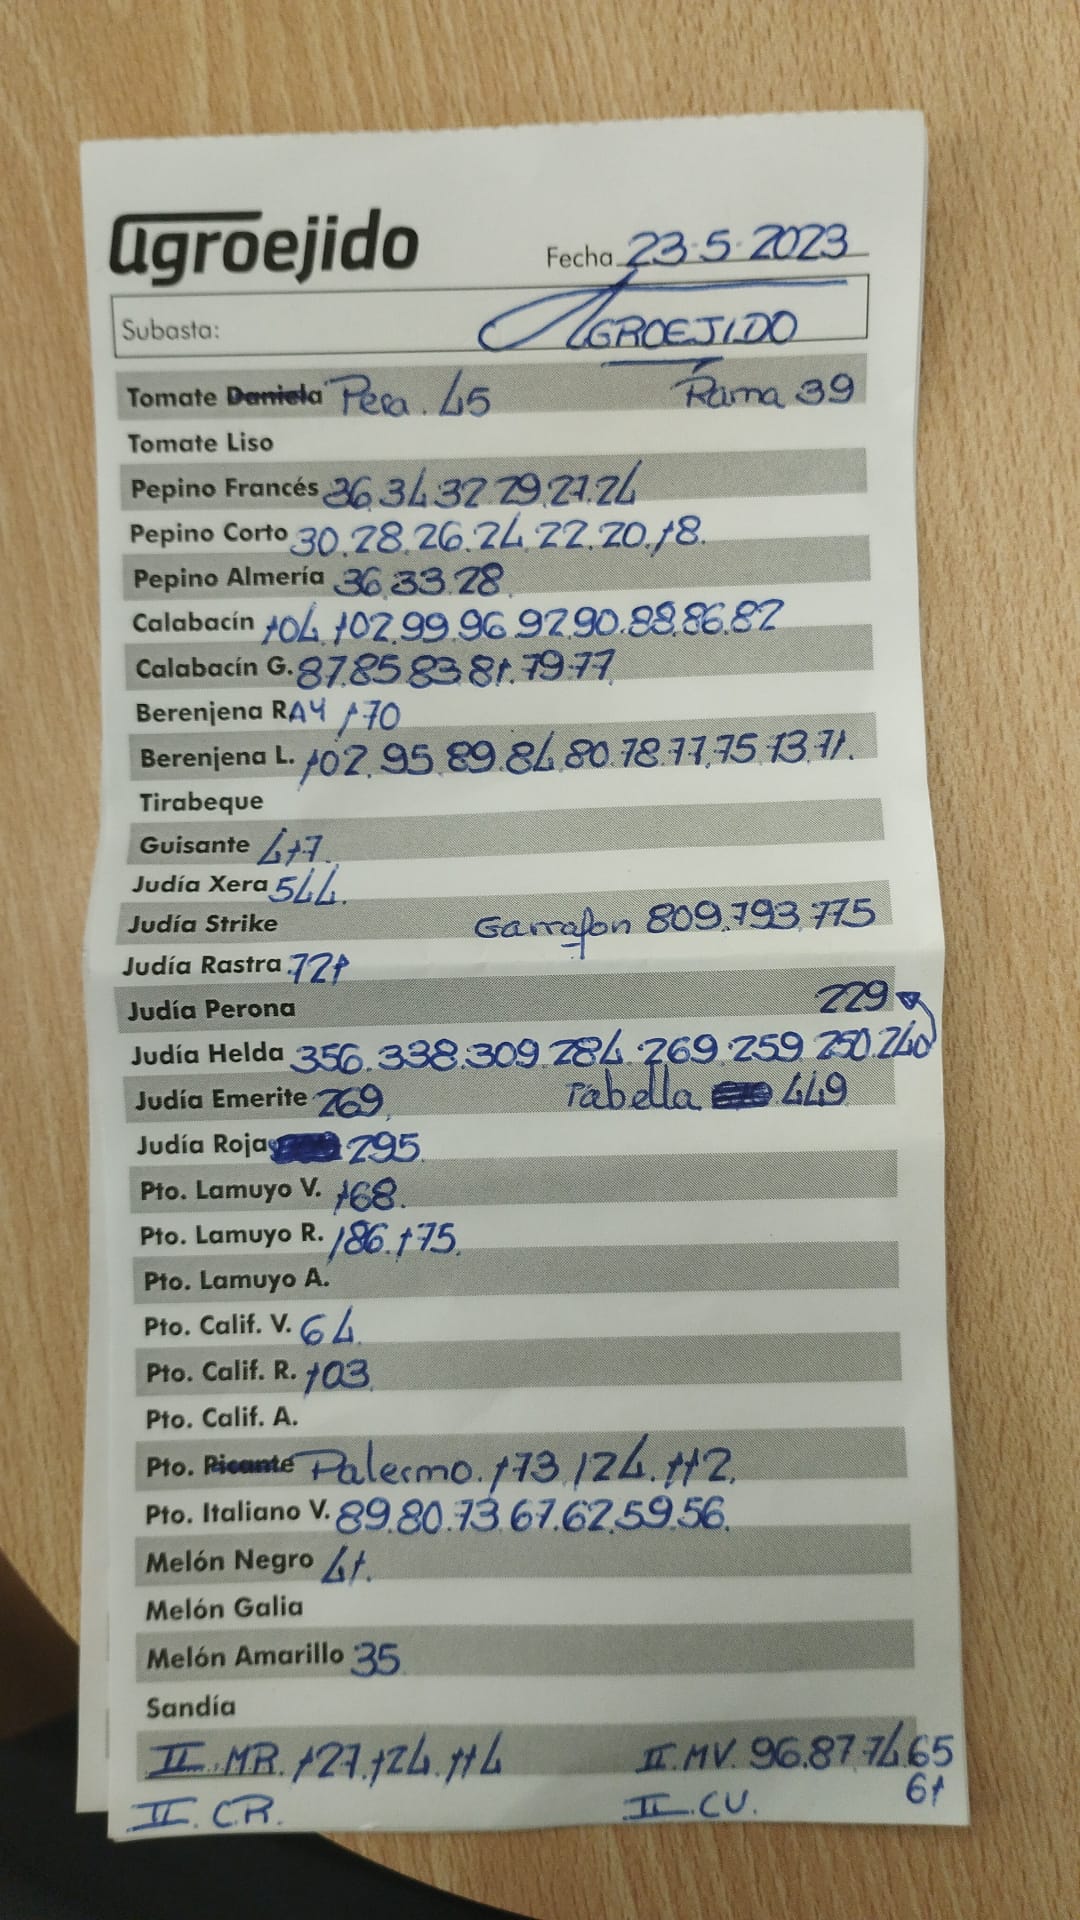 agroejido
Fecha 23-5-2023
Subasta: AGROEJIDO
Tomate Daniela Pera. 45 Rama 39
Tomate Liso
Pepino Francés 36.34.32.29.27.24
Pepino Corto 30.28.26.24.22.20.18.
Pepino Almería 36.33.28.
Calabacín 104.102.99.96.92.90.88.86.82
Calabacín G. 87.85.83.81.79.77
Berenjena RAY 170
Berenjena L. 102.95.89.84.80.78.77.75.73.71.
Tirabeque
Guisante 417.
Judía Xera 544.
Judía Strike Garrafon 809.793.775
Judía Rastra 721
Judía Perona 229
Judía Helda 356.338.309.284.269.259.250.240
Judía Emerite 269. Tabella 449
Judía Roja 295.
Pto. Lamuyo V. 168.
Pto. Lamuyo R. 186.175.
Pto. Lamuyo A.
Pto. Calif. V. 64.
Pto. Calif. R. 103.
Pto. Calif. A.
Pto. Picante Palermo. 173.124.112.
Pto. Italiano V. 89.80.73.67.62.59.56.
Melón Negro 41.
Melón Galia
Melón Amarillo 35
Sandía
II. MR. 127.124.114 II. MV. 96.87.74.65
61
II. CR. II. CV.